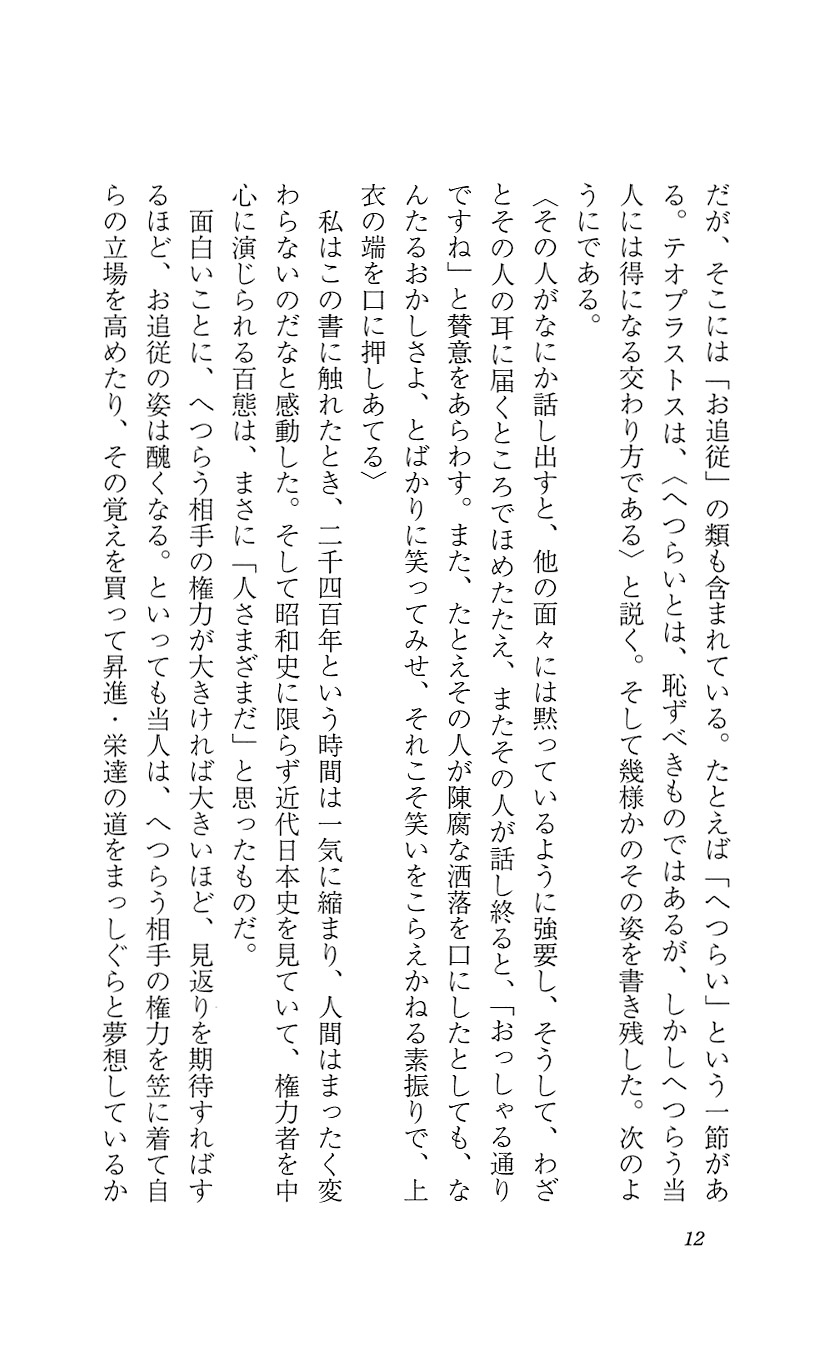 だが、そこには「お追従」の類も含まれている。たとえば「へつらい」という一節があ
る。テオプラストスは、〈へつらいとは、恥ずべきものではあるが、しかしへつらう当
人には得になる交わり方である〉と説く。そして幾様かのその姿を書き残した。次のよ
うにである。
〈その人がなにか話し出すと、他の面々には黙っているように強要し、そうして、わざ
とその人の耳に届くところでほめたたえ、またその人が話し終ると、「おっしゃる通り
ですね」と賛意をあらわす。また、たとえその人が陳腐な洒落を口にしたとしても、な
んたるおかしさよ、とばかりに笑ってみせ、それこそ笑いをこらえかねる素振りで、上
衣の端を口に押しあてる〉
私はこの書に触れたとき、二千四百年という時間は一気に縮まり、人間はまったく変
わらないのだなと感動した。そして昭和史に限らず近代日本史を見ていて、権力者を中
心に演じられる百態は、まさに「人さまざまだ」と思ったものだ。
面白いことに、へつらう相手の権力が大きければ大きいほど、見返りを期待すればす
るほど、お追従の姿は醜くなる。といっても当人は、へつらう相手の権力を笠に着て自
らの立場を高めたり、その覚えを買って昇進・栄達の道をまっしぐらと夢想しているか
12